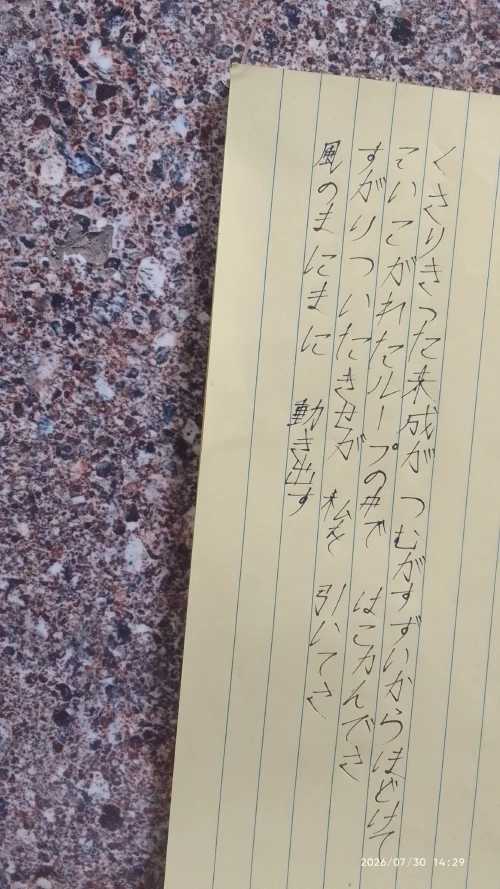 くさりきった来成が つむがすずいからほどけて
ていこがれたループの中で はこかんでさ
すがりついたきせが 私を 引いてさ
風のまにまに 動き出す
2026/07/30 14:29